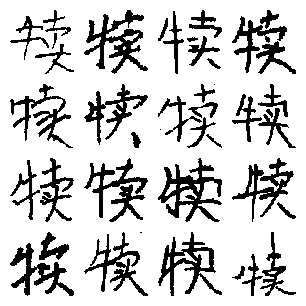 犊犊犊犊
犊犊犊犊
犊犊犊犊
犊犊犊犊